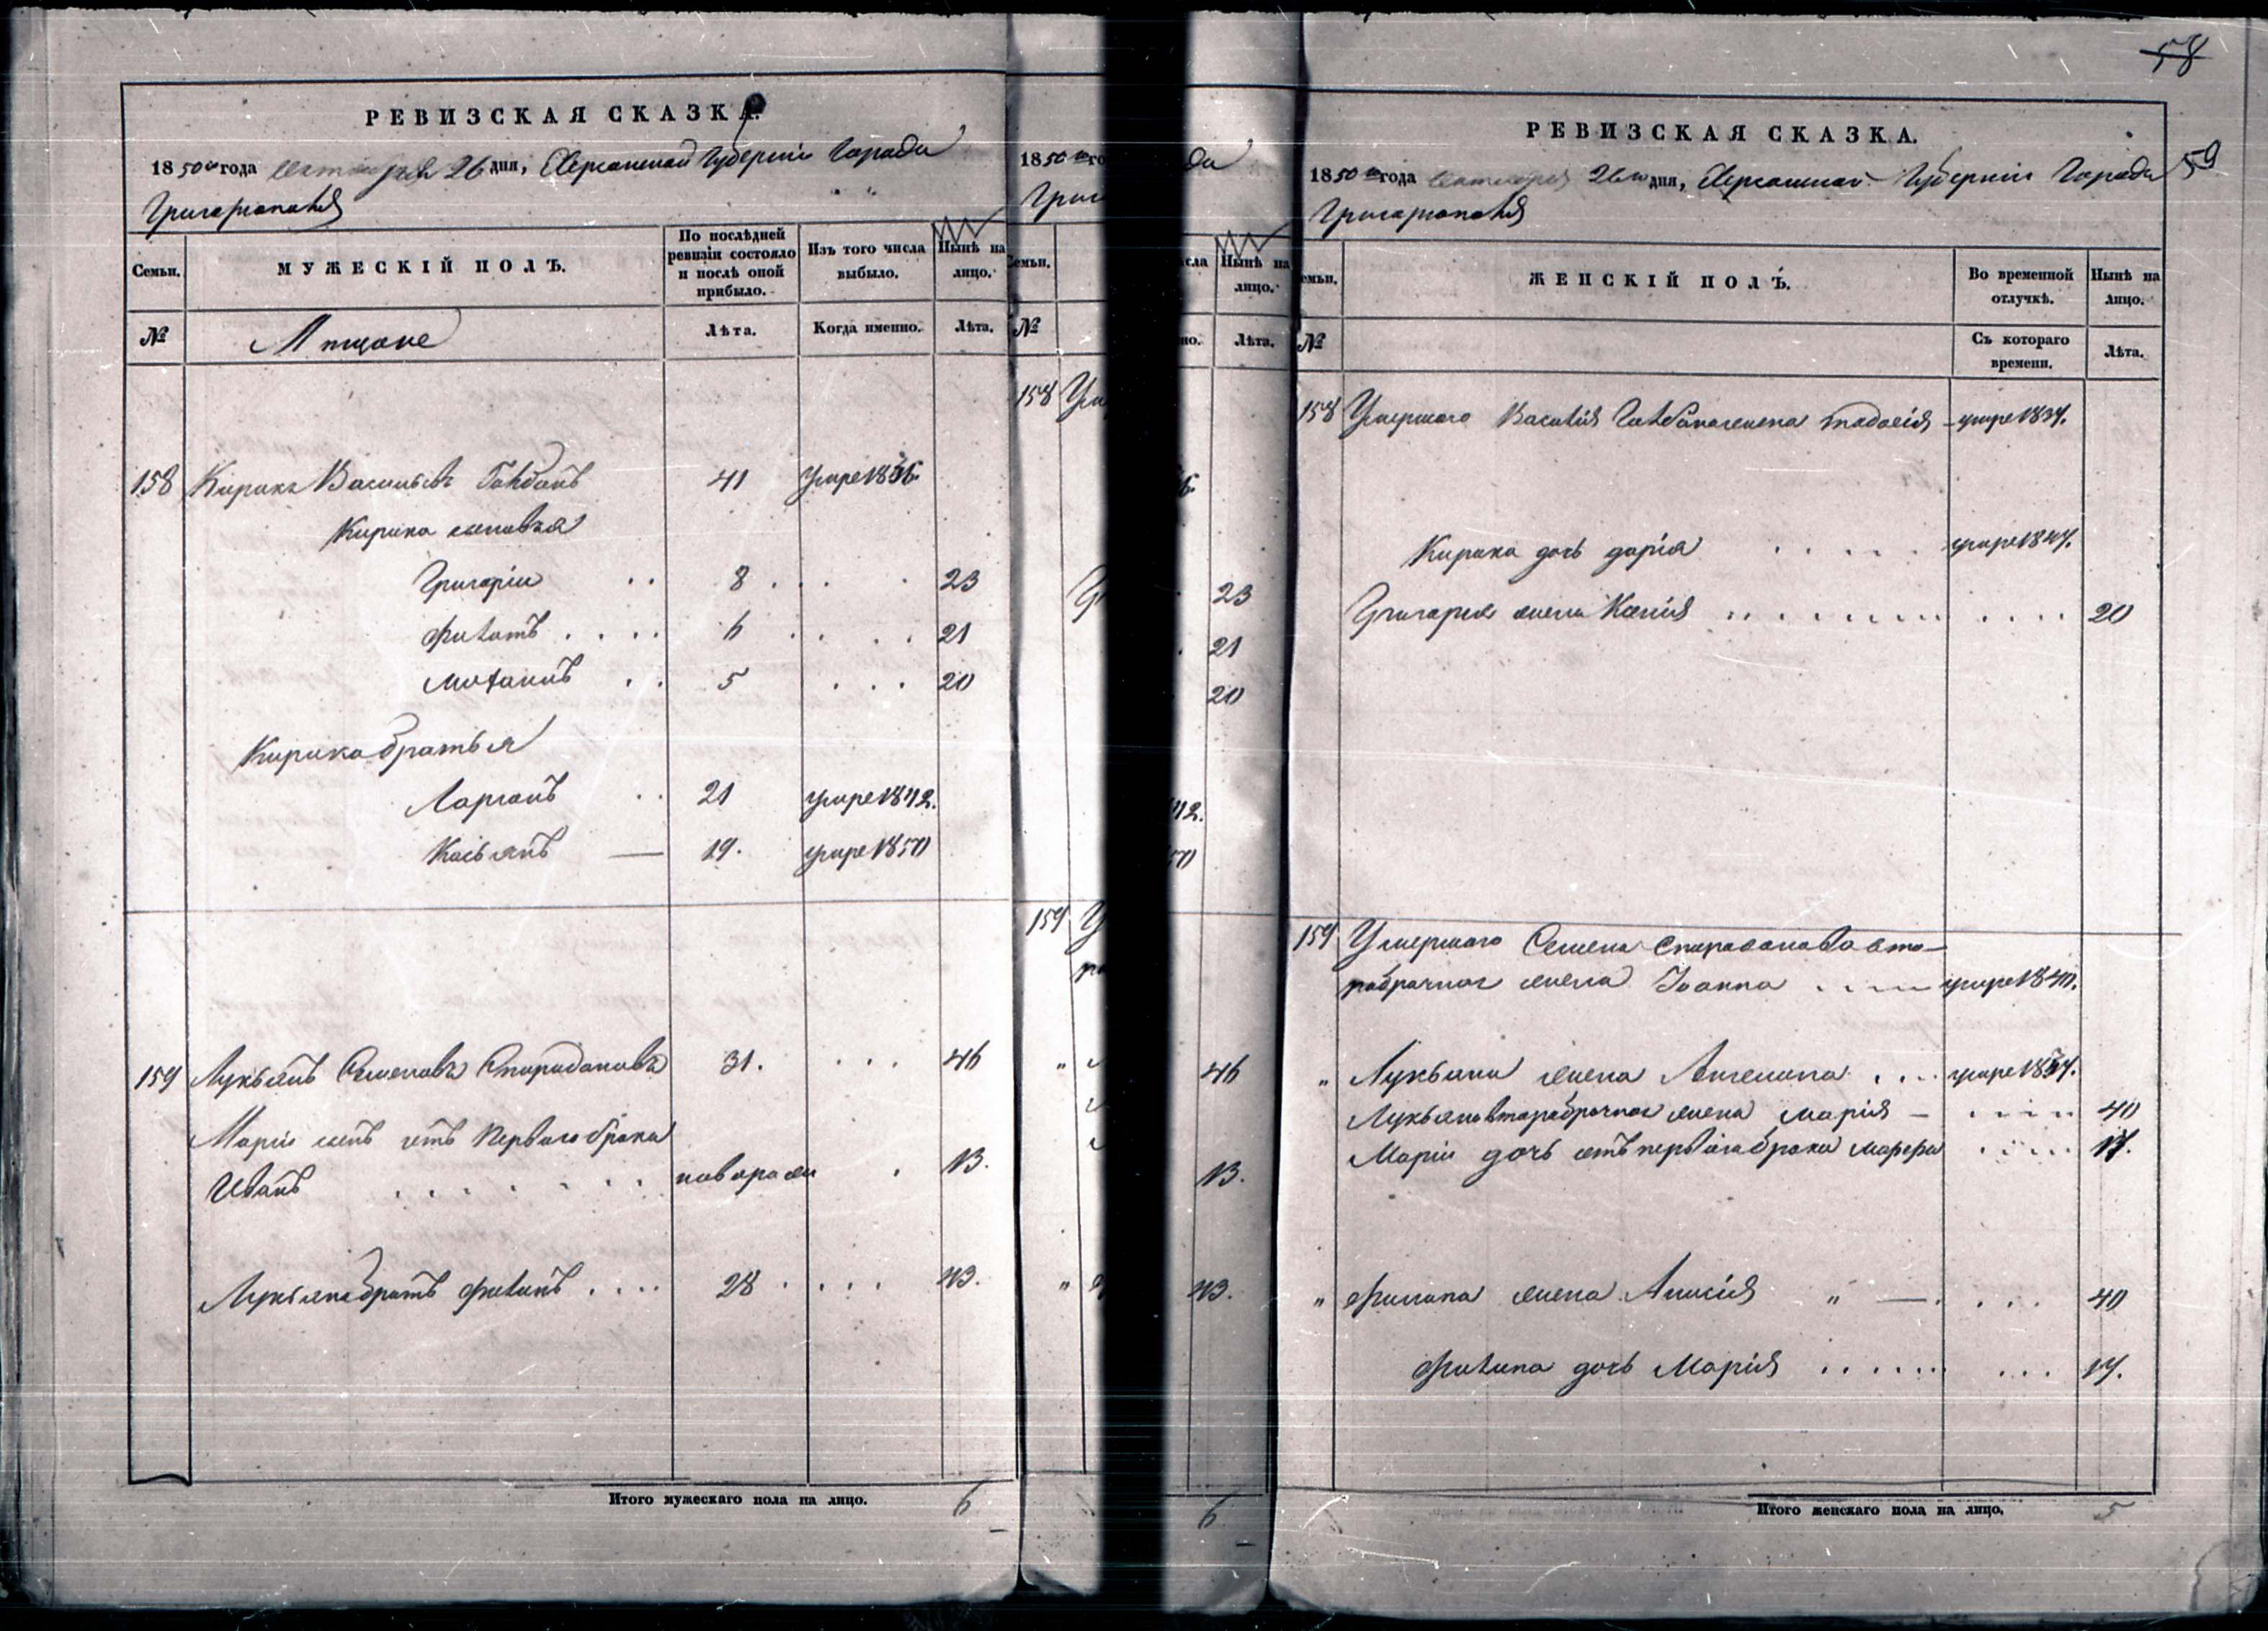 РЕВИЗСКАЯ СКАЗКА.
1850 го года октября 26 дня, Херсонской Губернiи Города
Григорiополя
Семьи.
МУЖЕСКIЙ ПОЛЪ.
По послѣдней ревизiи состояло и послѣ оной прибыло.
Изъ того числа выбыло.
Нынѣ на лицо.
№
Мѣщане
Лѣта.
Когда именно.
Лѣта.
158 Кирикъ Васильевъ 41 Умре 1836.
Кирика сыновья
Григорiи 8 23
Филатъ 6 21
5 20
Кирика братья
Ларiонъ 21 умре 1842.
Касьянъ 19. умре 1850
159 Лукьянъ Семеновъ Спиридоновъ 31. 46
Марiи сынъ отъ первого брака
Иванъ новорожд 13.
Лукьяна братъ Филипъ 28 43.
Итого мужескаго пола на лицо. 6
1850 го
158
23
21
20
42.
50
159
46
13.
43.
6
58
59
РЕВИЗСКАЯ СКАЗКА.
1850 го года октября 26 го дня, Херсонской Губернiи Города
Григорiополя
№
ЖЕНСКIЙ ПОЛЪ.
Во временной отлучкѣ.
Нынѣ на лицо.
Съ котораго времени.
Лѣта.
158 Умершаго Василiя жена умре 1837.
Кирика дочь дарiя умре 1847.
Григорiя жена Ксенiя 20
159 Умершаго Семена Спиридонова вто-
робрачная жена Iоанна умре 1840.
" Лукьяна жена Ангелина умре 1837.
Лукьяна второбрачная жена марiя 40
Марiи дочь отъ первога брака марфа 17.
" Филипа жена Анисiя " 40
Филипа дочь Марiя 17.
Итого женскаго пола на лицо. 5